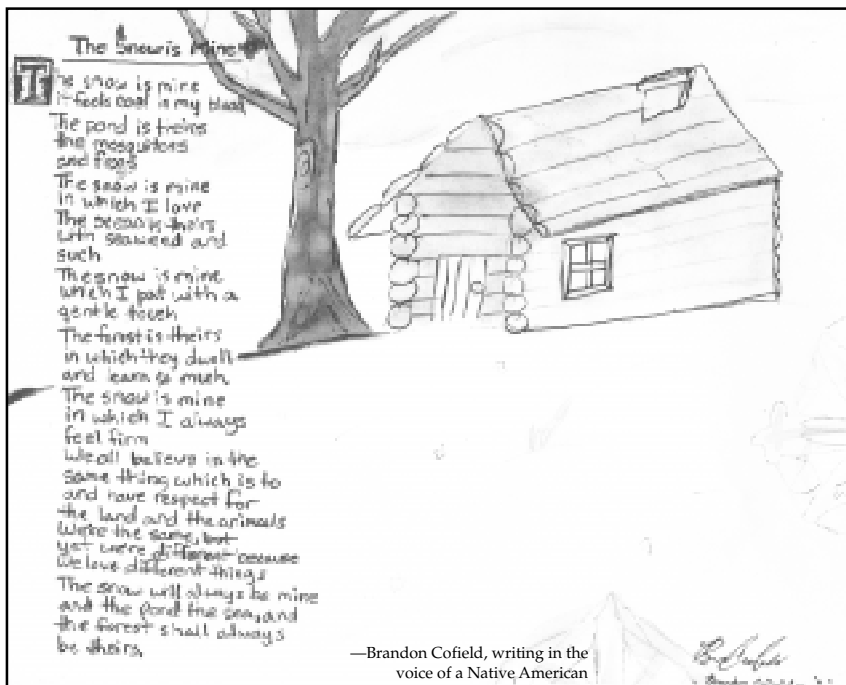 The Snow is Mine
The snow is mine
it feels cool in my blood
The pond is theirs
the mosquitoes
and frogs
The snow is mine
in which I love
The sea is theirs
with seaweed and
such
The snow is mine
which I pat with a
gentle touch
The forest is theirs
in which they dwell
and learn so much
The snow is mine
in which I always
feel firm
We all believe in the
same thing which is to
and have respect for
the land and the animals
We're the same, but
yet we're different because
we love different things
The snow will always be mine
and the pond the sea, and
the forest shall always
be theirs.
—Brandon Cofield, writing in the
voice of a Native American